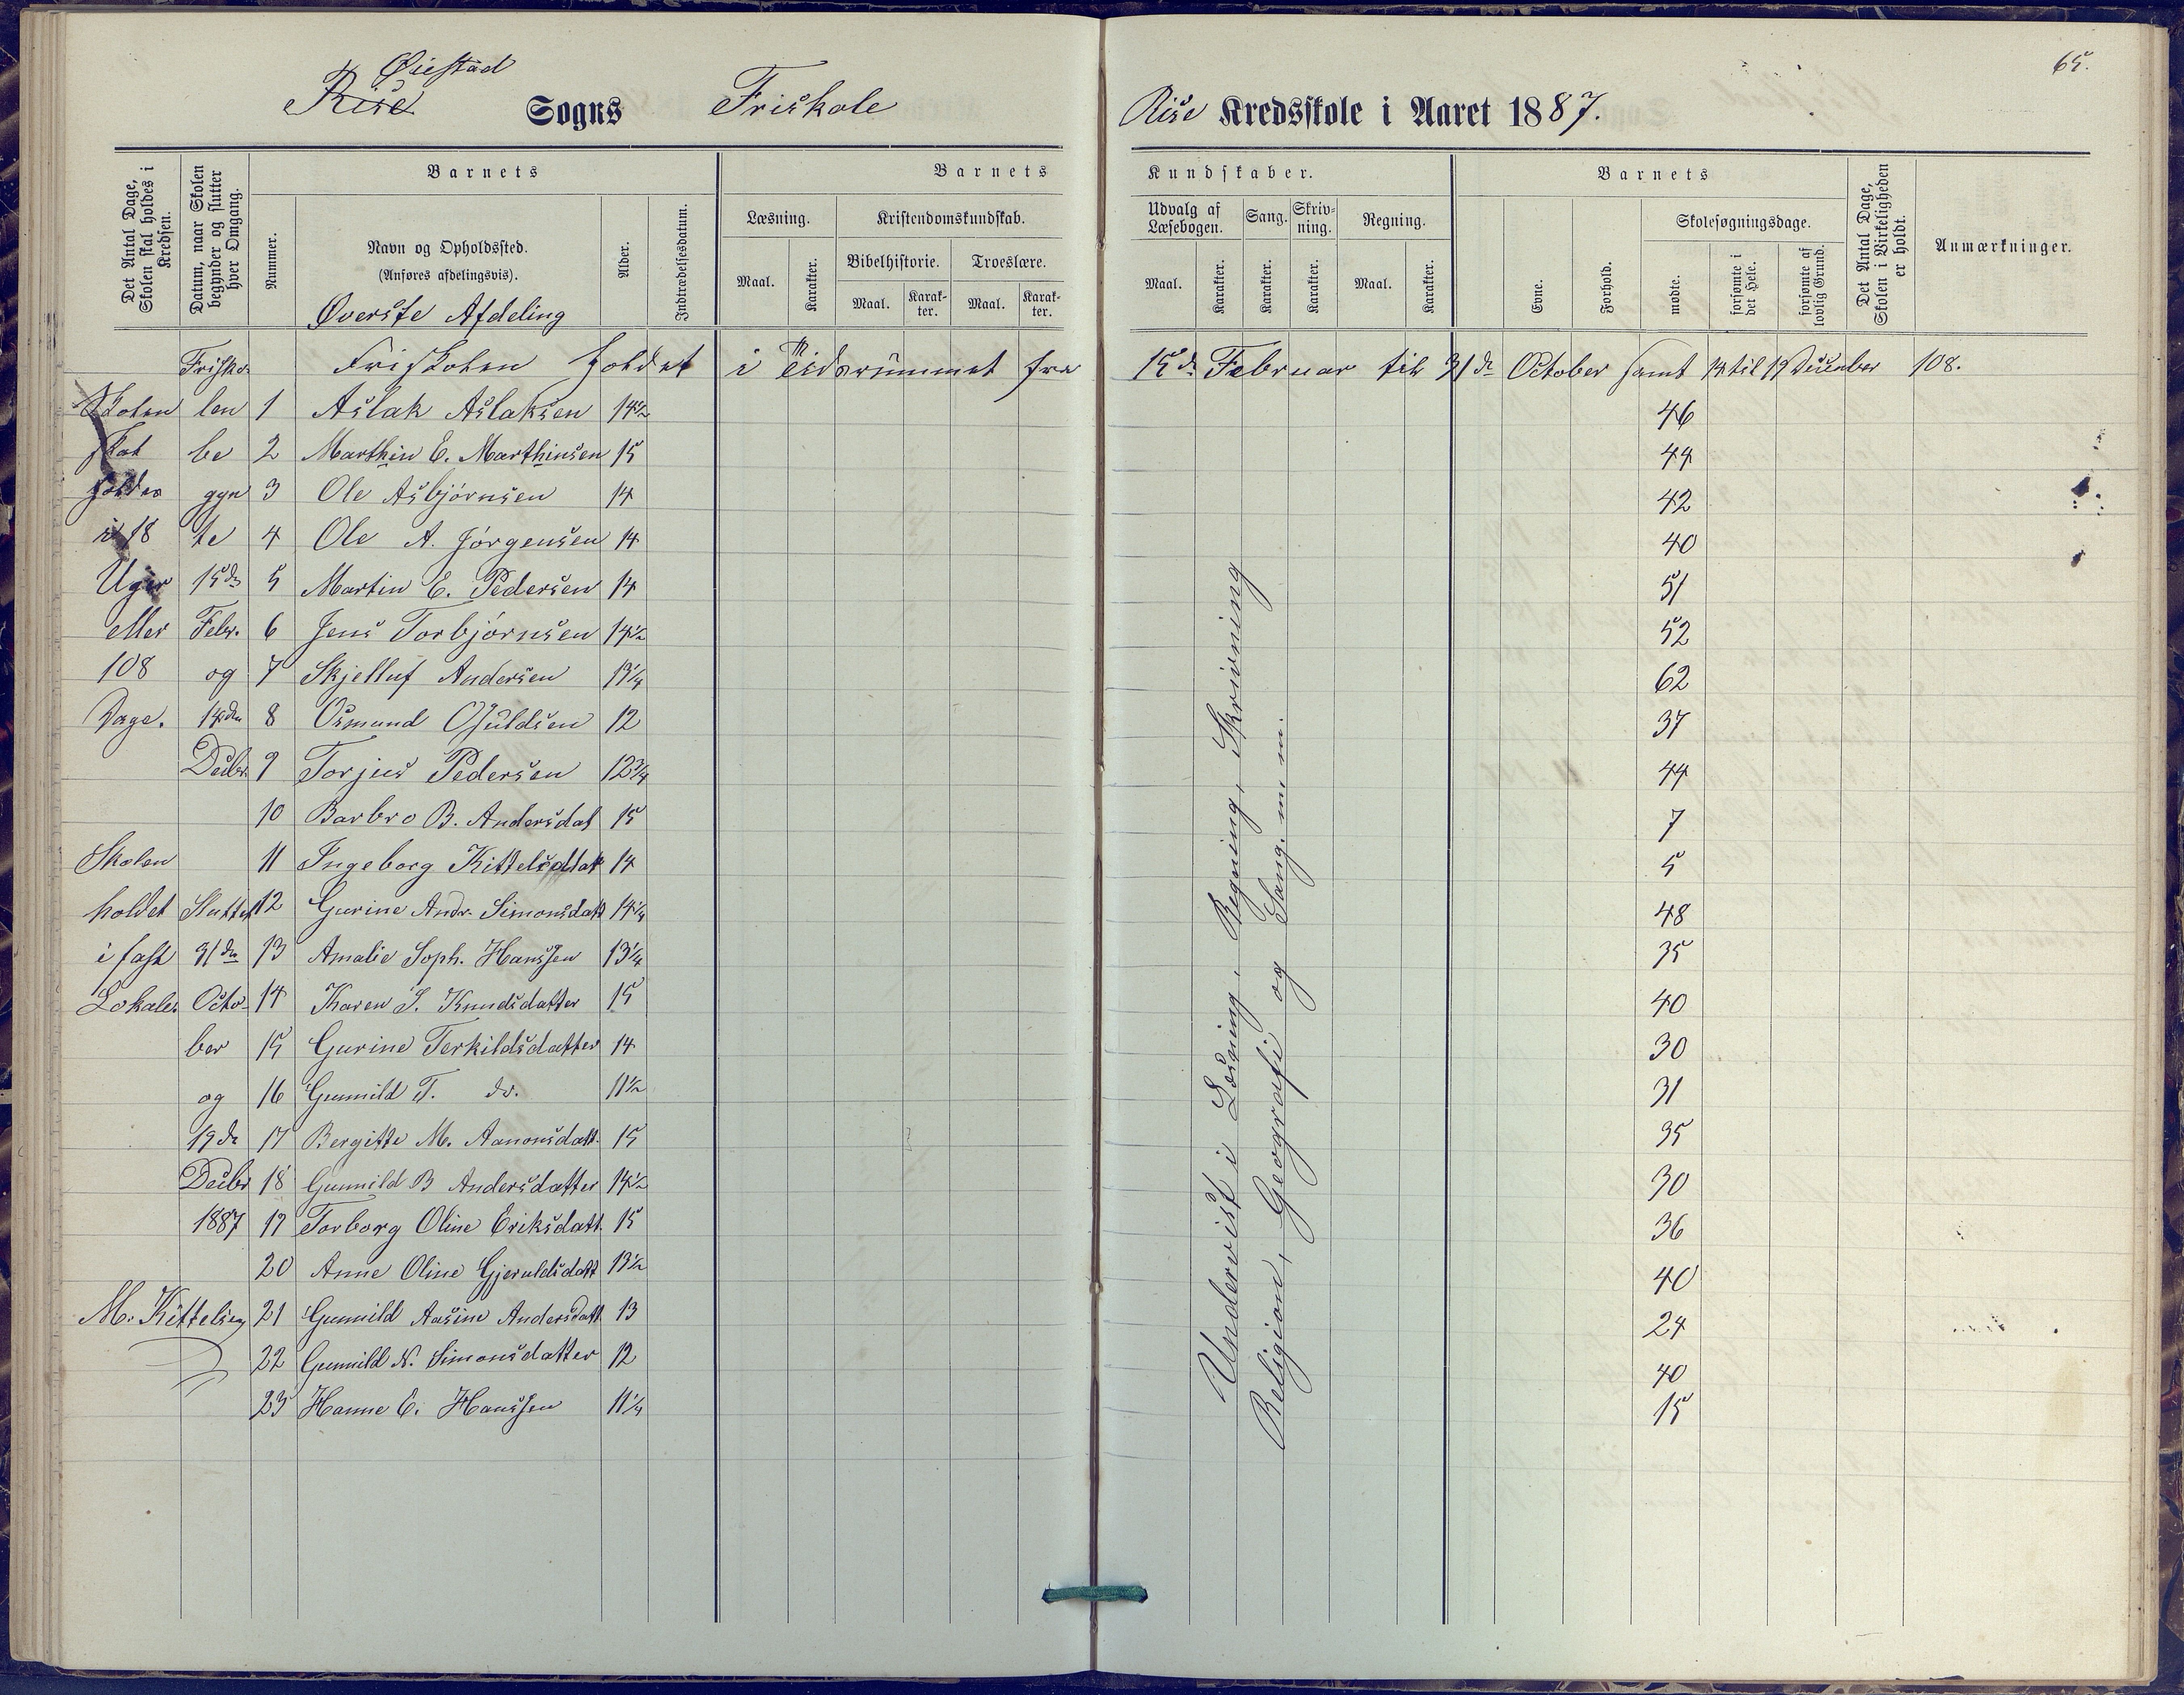 Øiestad
Rise Sogns Friskole Rise Kredsskole i Aaret 1887.
65.
Det Antal Dage, Skolen skal holdes i Kredsen.
Datum, naar Skolen begynder og slutter hver Omgang.
Barnets
Nummer.
Navn og Opholdssted.
(Anføres afdelingsvis).
Øverste Afdeling
Alder.
Indtrædelsesdatum.
Barnets Kundskaber.
Læsning.
Maal. Karakter.
Kristendomskundskab.
Bibelhistorie. Troeslære.
Maal. Karakter. Maal. Karakter.
Udvalg af Læsebogen.
Maal. Karakter.
Sang.
Karakter.
Skrivning.
Karakter.
Regning.
Maal. Karakter.
Barnets
Evne. Forhold.
Skolesøgningsdage.
mødte. forsømte i det Hele. forsømte af lovlig Grund.
Det Antal Dage, Skolen i Virkeligheden er holdt.
Anmærkninger.
Frisko- Friskolen holdet i Tidsrummet fra 15de Februar til 31de October samt 14 til 19 December 108.
Skolen len 1 Aslak Aslaksen 14½ 46
skal be 2 Marthin E. Marthinsen 15 44
holdes gyn 3 Ole Asbjørnsen 14 42
i 18 te 4 Ole A. Jørgensen 14 40
Uger 15de 5 Martin E. Pedersen 14 51
eller Febr. 6 Jens Torbjørnsen 14½ 52
108 og 7 Skjelluf Andersen 13¼ 62
Dage. 14den 8 Osmund Osuldsen 12 37
Decbr. 9 Torjus Pedersen 12¾ 44
10 Barbro B. Andersdat 15 7
Skolen 11 Ingeborg Kittelsdtat 14 5
holdet Sluttet 12 Gurine Andr. Simonsdatt 14¼ 48
i fast 31de 13 Amalie Soph. Hanssen 13¼ 35
Lokale. Octo- 14 Karen S. Knudsdatter 15 40
ber 15 Gurine Terkildsdatter 14 30
og 16 Gunnild T. do. 11½ 31
19de 17 Bergitte M. Aanonsdatt. 15 35
Decbr 18 Gunnild B Andersdatter 14½ 30
1887 19 Torborg Oline Eriksdatt. 15 36
20 Anne Oline Gjeruldsdatt 13½ 40
M. Kittelsen 21 Gunnild Aasine Andersdatt. 13 24
22 Gunnild N. Simonsdatter 12 40
23 Hanne E. Hanssen 11¼ 15
Undervist i Læsning, Regning, Skrivning
Religion, Geografi og Sang. m m.